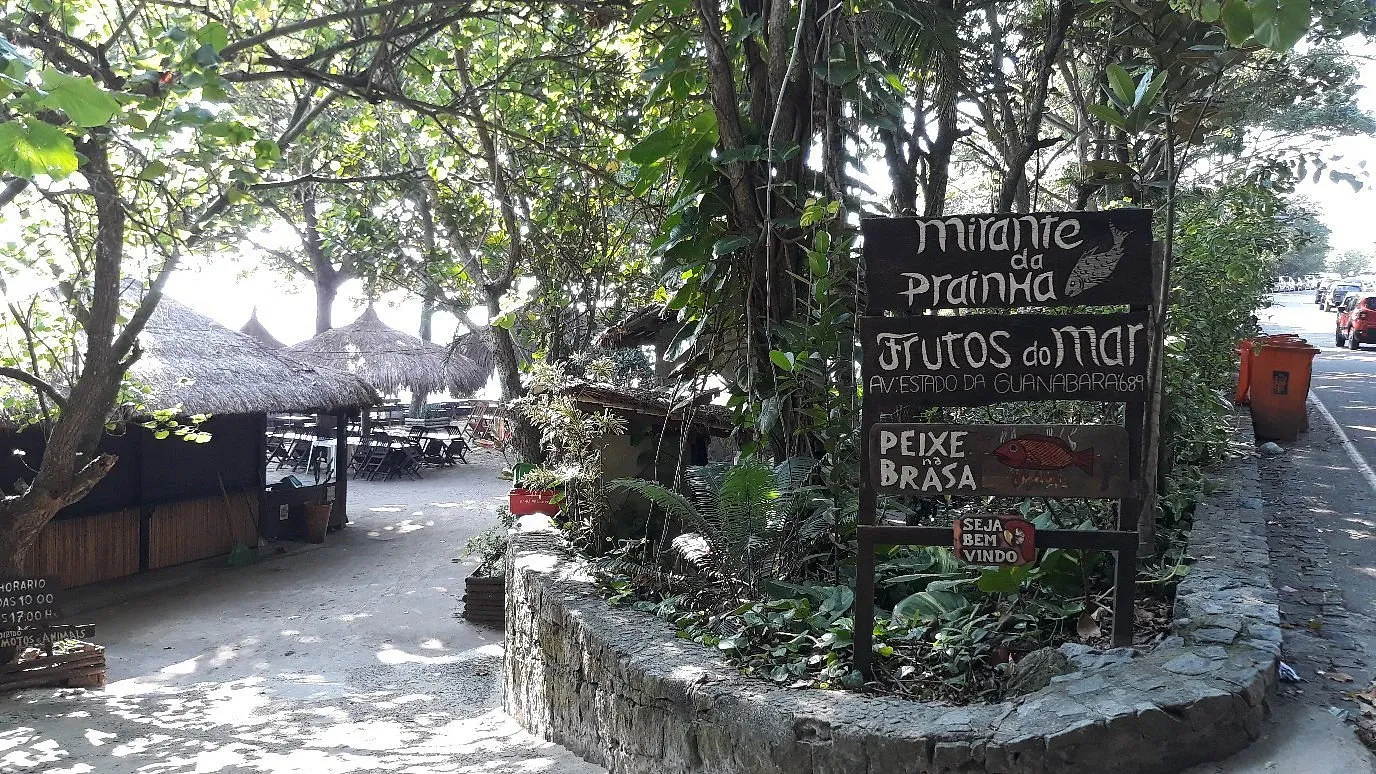 Mirante
da
Prainha
Frutos do Mar
AV. ESTADO DA GUANABARA 689
PEIXE
na
BRASA
SEJA
BEM
VINDO
HORARIO
DAS 10:00
ÀS 17:00 H.
MOTOS ANIMAIS